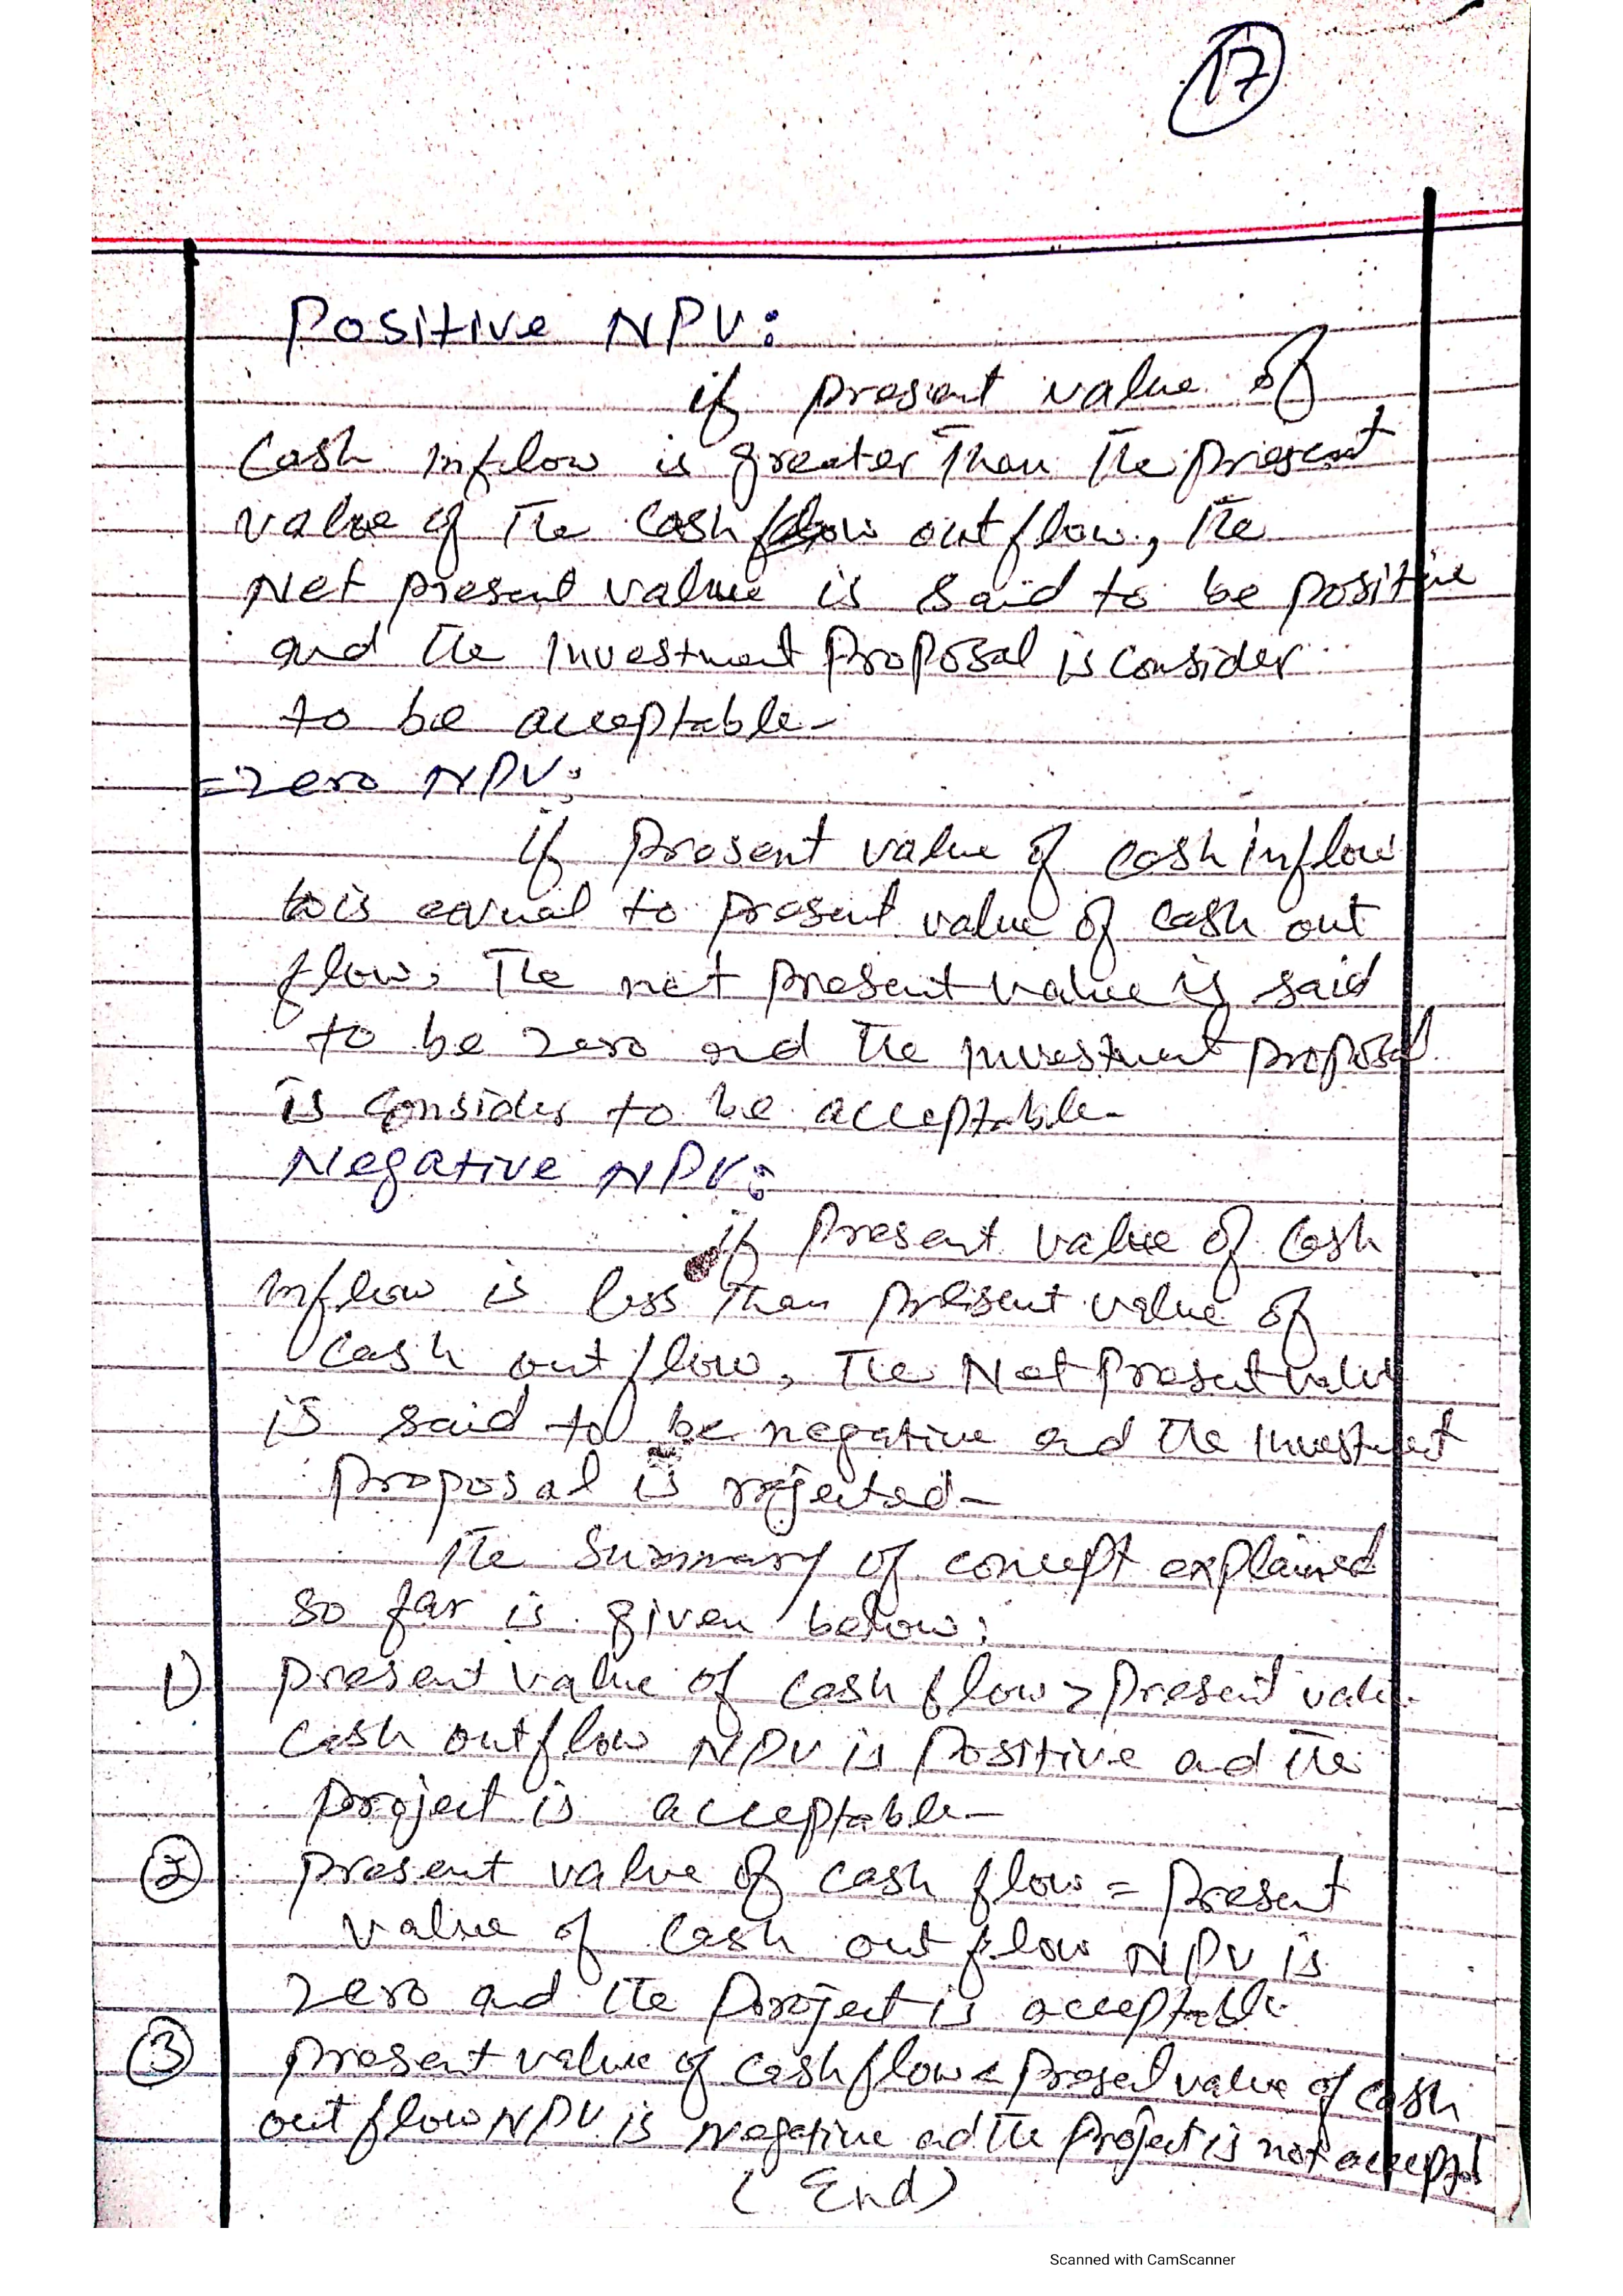 17
Positive NPV:
if present value of
Cash inflow is greater than the present
value of the cash flow outflow, the
Net present value is said to be positive
and the investment Proposal is consider
to be acceptable-
=Zero NPV:
if present value of cash inflow
is equal to present value of cash out
flow, The net present value is said
to be zero and the investment proposal
is consider to be acceptable-
Negative NPV:
if present value of cash
inflow is less than present value of
cash out flow, The Net Present value
is said to be negative and the investment
proposal is rejected-
The Summary of concept explained
so far is given below:
1) present value of cash flow > present value
cash outflow NPV is Positive and the
project is acceptable-
2 present value of cash flow = Present
value of cash out flow NPV is
zero and the project is acceptable.
3 present value of cash flow < present value of cash
out flow NPV is negative and the Project is not
(End)
Scanned with CamScanner